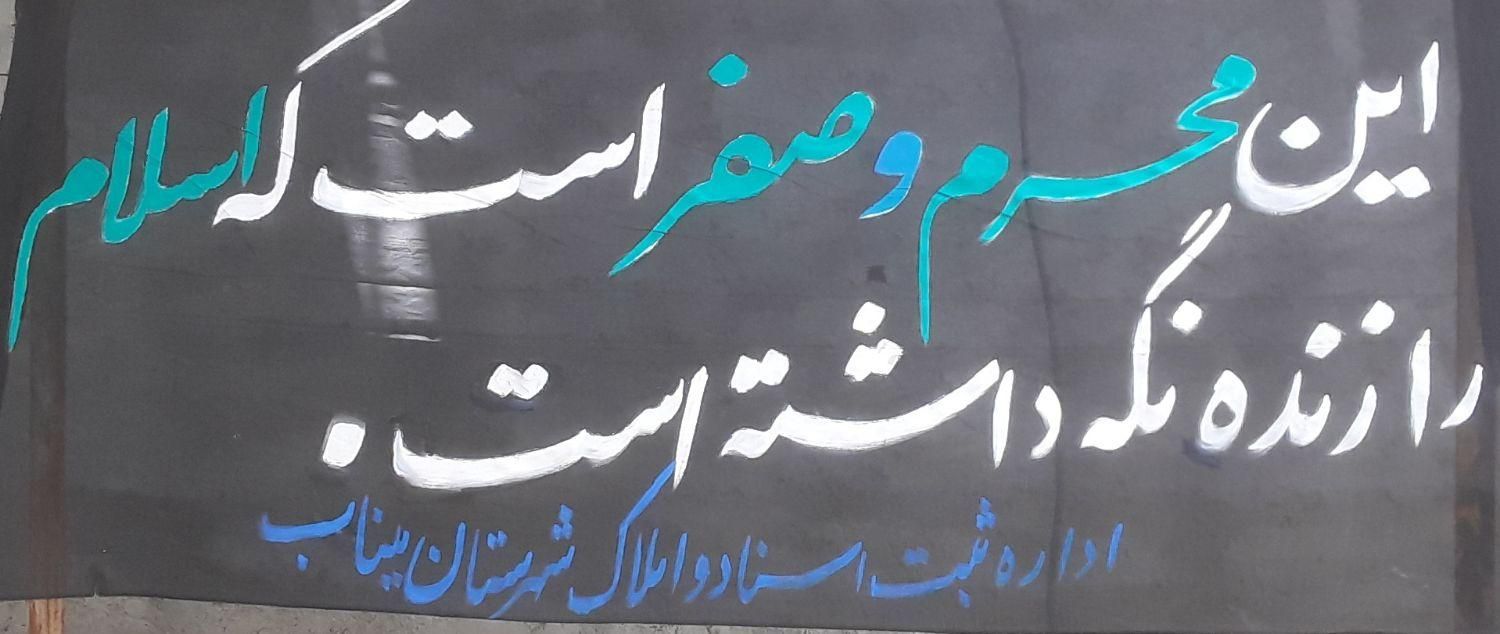 این محرم و صفر است که اسلام
را زنده نگه داشته است.
اداره ثبت اسناد و املاک شهرستان میناب